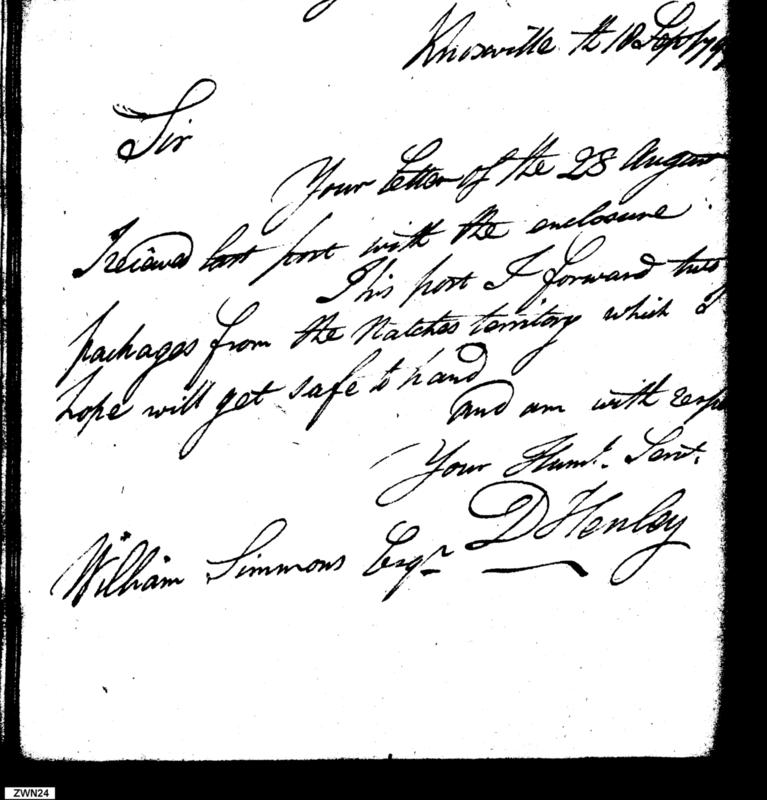 Knoxville th 18 Sep 179
Sir
Your letter of the 28 August
I recieved last post with the enclosure.
This post I forward two
packages from the Natches territory which I
hope will get safe to hand
and am with resp
Your Huml. Servt.
D Henley
William Simmons Esqr
ZWN24